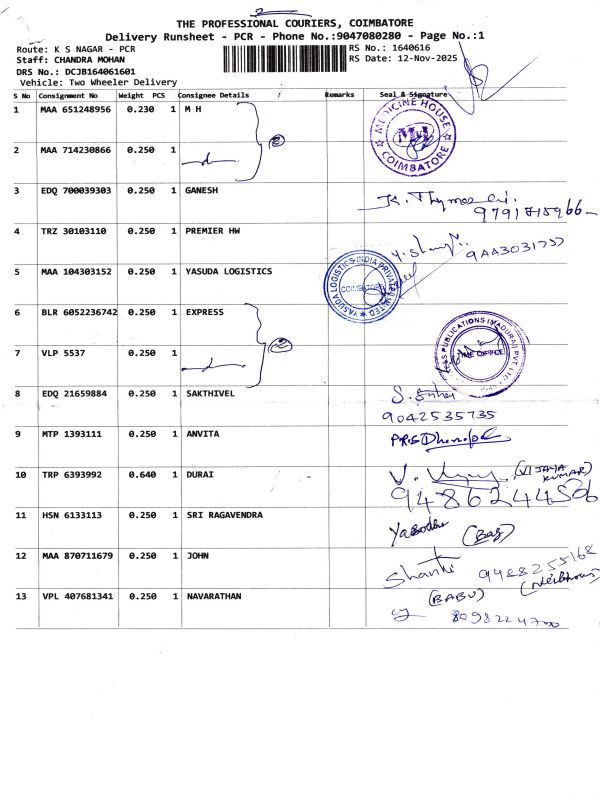 2
THE PROFESSIONAL COURIERS, COIMBATORE
Delivery Runsheet - PCR - Phone No.:9047080280 - Page No.:1
Route: K S NAGAR - PCR RS No.: 1640616
Staff: CHANDRA MOHAN RS Date: 12-Nov-2025
DRS No.: DCJB164061601
Vehicle: Two Wheeler Delivery
S No Consignment No Weight PCS Consignee Details Remarks Seal & Signature
1 MAA 651248956 0.230 1 M H 2 MEDICINE HOUSE M.H COIMBATORE
2 MAA 714230866 0.250 1
3 EDQ 700039303 0.250 1 GANESH
4 TRZ 30103110 0.250 1 PREMIER HW
5 MAA 104303152 0.250 1 YASUDA LOGISTICS YASUDA LOGISTICS INDIA PRIVATE LIMITED COIMBATORE
6 BLR 6052236742 0.250 1 EXPRESS 2 PUBLICATIONS (MADURAI) PVT LTD TIME OFFICE
7 VLP 5537 0.250 1
8 EDQ 21659884 0.250 1 SAKTHIVEL
9042535735
9 MTP 1393111 0.250 1 ANVITA
10 TRP 6393992 0.640 1 DURAI (VIJAYA KUMAR)
9486244506
11 HSN 6133113 0.250 1 SRI RAGAVENDRA
12 MAA 870711679 0.250 1 JOHN Shanti 9488255168
13 VPL 407681341 0.250 1 NAVARATHAN (BABU)
8098224700